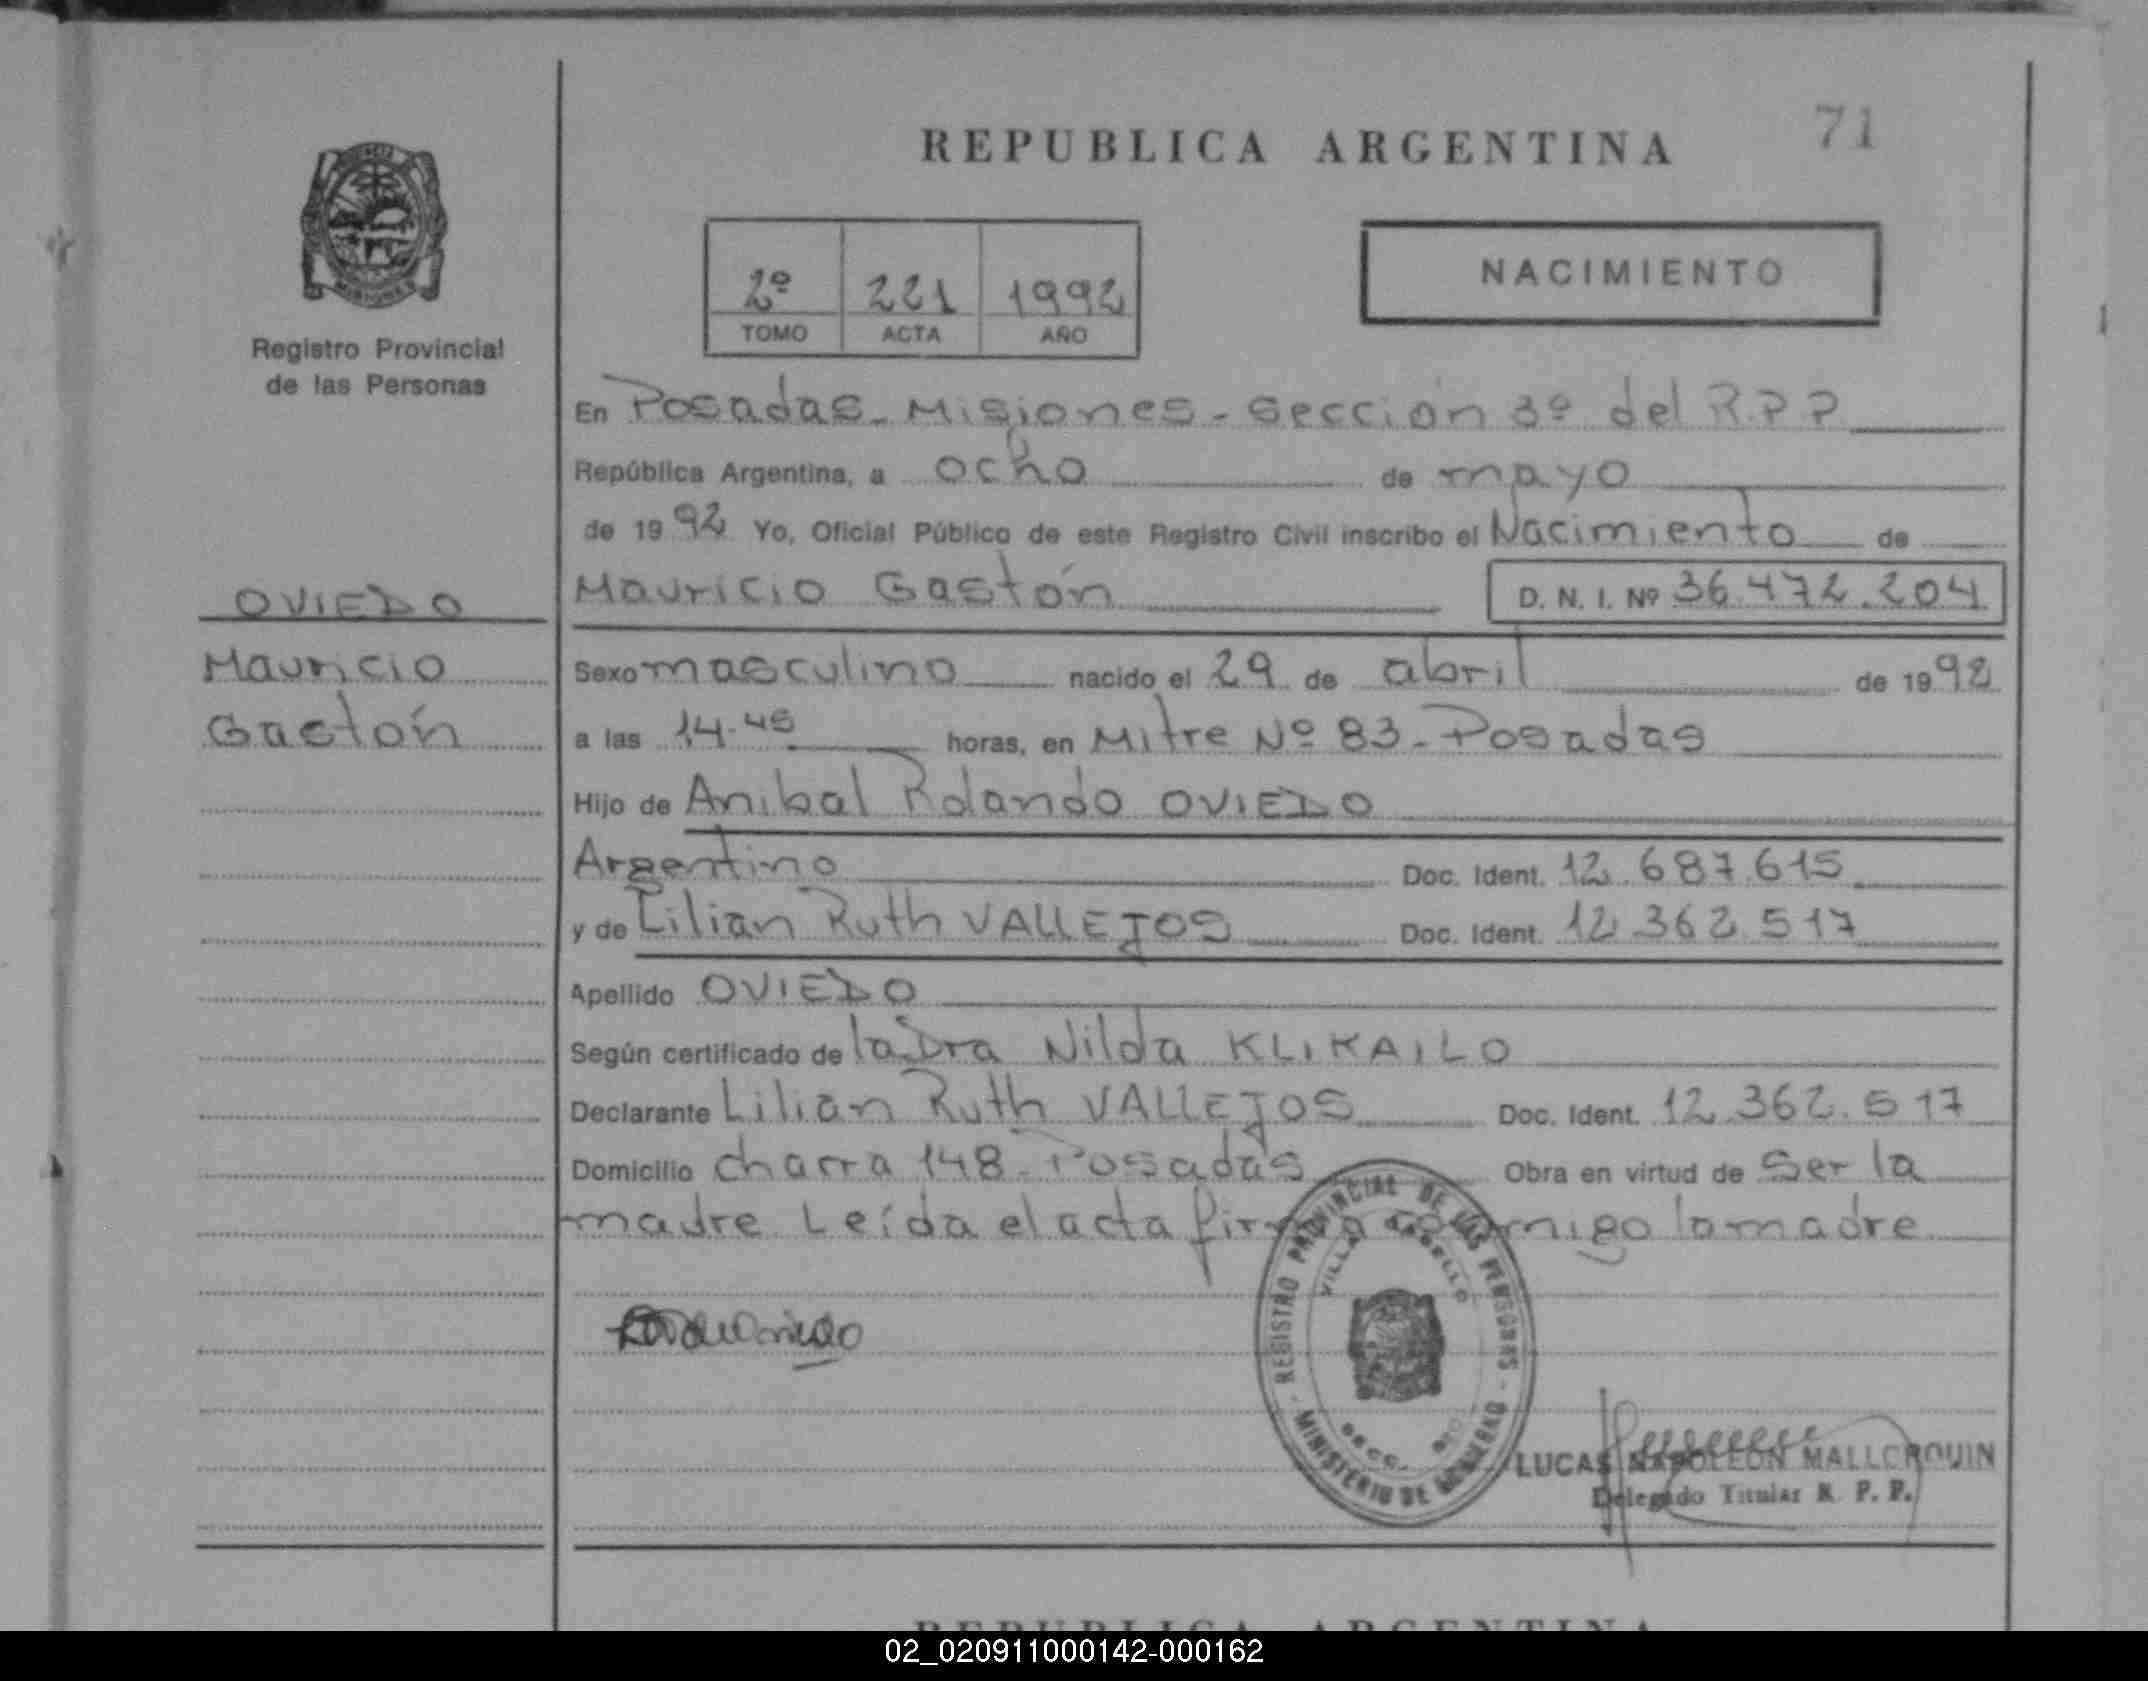 REPUBLICA ARGENTINA
71
NACIMIENTO
2º 221 1992
TOMO ACTA AÑO
Registro Provincial
de las Personas
En Posadas - Misiones - Sección 3º del R.P.P
República Argentina, a ocho de mayo
de 1992 Yo, Oficial Público de este Registro Civil inscribo el Nacimiento de
Mauricio Gastón D. N. I. Nº 36.472.204
OVIEDO
Mauricio
Gastón
Sexo masculino nacido el 29 de abril de 1992
a las 14.45 horas, en Mitre Nº 83 - Posadas
Hijo de Anibal Rolando OVIEDO
Argentino Doc. Ident. 12.687.615
y de Lilian Ruth VALLEJOS Doc. Ident. 12.362.517
Apellido OVIEDO
Según certificado de la Dra Nilda KLIKAILO
Declarante Lilian Ruth VALLEJOS Doc. Ident. 12.362.517
Domicilio chacra 148 - Posadas Obra en virtud de ser la
madre Leída el acta firma conmigo la madre
REGISTRO PROVINCIAL DE LAS PERSONAS
MINISTERIO DE GOBIERNO
VILLA CABELLO
SECC.
LUCAS NAPOLEON MALLORQUIN
Delegado Titular R. P. P.
REPUBLICA ARGENTINA
02_020911000142-000162